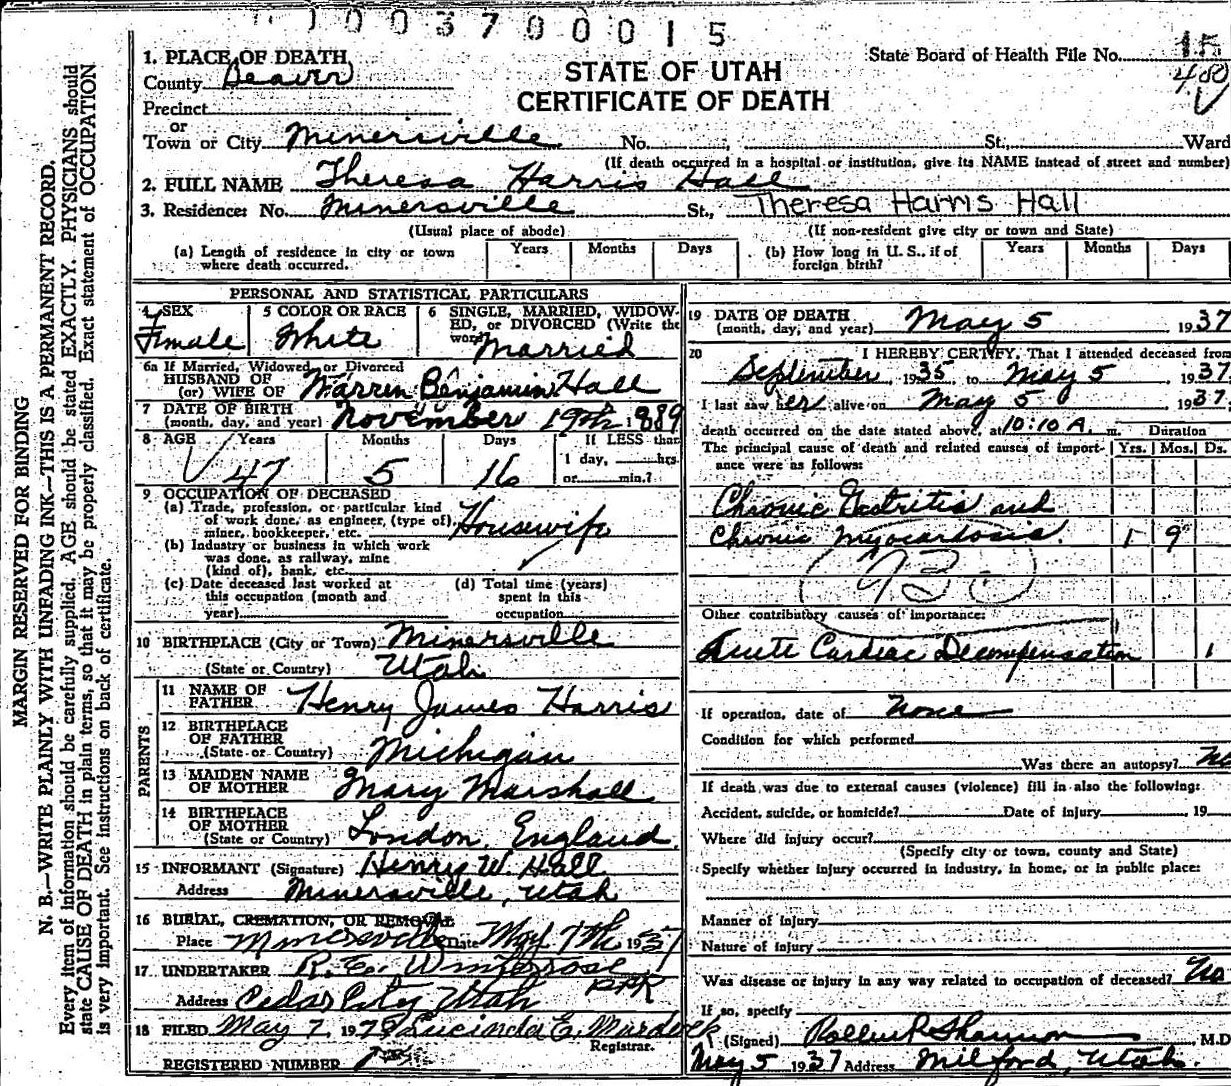 1003700015
State Board of Health File No. 15
480
STATE OF UTAH
CERTIFICATE OF DEATH
1. PLACE OF DEATH
County Beaver
Precinct
or
Town or City Minersville No. St., Ward
(If death occurred in a hospital or institution, give its NAME instead of street and number)
2. FULL NAME Theresa Harris Hall
3. Residence: No. Minersville St., Theresa Harris Hall
(Usual place of abode) (If non-resident give city or town and State)
(a) Length of residence in city or town where death occurred. Years Months Days (b) How long in U. S., if of foreign birth? Years Months Days
PERSONAL AND STATISTICAL PARTICULARS
4 SEX 5 COLOR OR RACE 6 SINGLE, MARRIED, WIDOW-
ED, or DIVORCED (Write the
word)
Female White Married
6a If Married, Widowed or Divorced
HUSBAND OF
(or) WIFE OF Warren Benjamin Hall
7 DATE OF BIRTH
(month, day, and year) November 19th 1889
8 AGE Years Months Days If LESS than
1 day, hrs.
or min.?
47 5 16
9 OCCUPATION OF DECEASED
(a) Trade, profession, or particular kind
of work done, as engineer, (type of)
miner, bookkeeper, etc. Housewife
(b) Industry or business in which work
was done, as railway, mine
(kind of), bank, etc.
(c) Date deceased last worked at
this occupation (month and
year)
(d) Total time (years)
spent in this
occupation
10 BIRTHPLACE (City or Town) Minersville
(State or Country) Utah
PARENTS
11 NAME OF
FATHER Henry James Harris
12 BIRTHPLACE
OF FATHER
(State or Country) Michigan
13 MAIDEN NAME
OF MOTHER Mary Marshall
14 BIRTHPLACE
OF MOTHER
(State or Country) London, England
15 INFORMANT (Signature) Henry W. Hall
Address Minersville, Utah
16 BURIAL, CREMATION, OR REMOVAL
Place Minersville Date May 7th 1937
17 UNDERTAKER R. E. Winterrose
Address Cedar City Utah
18 FILED May 7, 19 Lucinda E. Murdock
Registrar.
REGISTERED NUMBER
19 DATE OF DEATH
(month, day, and year) May 5 1937
20 I HEREBY CERTIFY, That I attended deceased from
September 1935 to May 5 1937
I last saw her alive on May 5 1937.
death occurred on the date stated above, at 10:10 A. m. Duration
The principal cause of death and related causes of import-
ance were as follows: Yrs. Mos. Ds.
Chronic and
Chronic Myocardosis 1 9
93
Other contributory causes of importance:
Acute Cardiac Decompensation 1
If operation, date of None
Condition for which performed
Was there an autopsy? No
If death was due to external causes (violence) fill in also the following:
Accident, suicide, or homicide? Date of injury , 19
Where did injury occur?
(Specify city or town, county and State)
Specify whether injury occurred in industry, in home, or in public place:
Manner of injury
Nature of injury
Was disease or injury in any way related to occupation of deceased? No
If so, specify
(Signed) Shannon, M.D
May 5 1937 Address Milford, Utah.
MARGIN RESERVED FOR BINDING
N. B.—WRITE PLAINLY WITH UNFADING INK—THIS IS A PERMANENT RECORD.
Every item of information should be carefully supplied. AGE should be stated EXACTLY. PHYSICIANS should
state CAUSE OF DEATH in plain terms, so that it may be properly classified. Exact statement of OCCUPATION
is very important. See instructions on back of certificate.